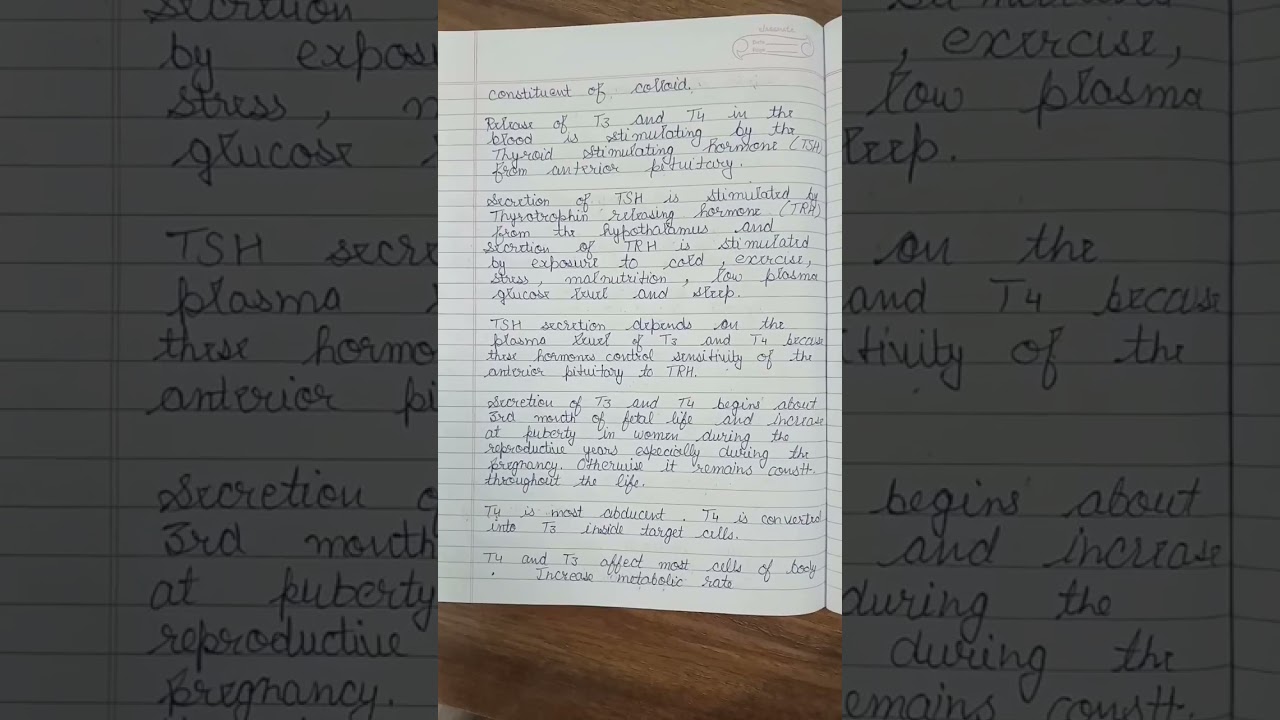 classmate
Date
Page
constituent of colloid.
Release of T3 and T4 in the
blood is stimulating by the
Thyroid stimulating hormone (TSH)
from anterior pituitary.
Secretion of TSH is stimulated by
Thyrotrophin releasing hormone (TRH)
from the hypothalamus and
secretion of TRH is stimulated
by exposure to cold, exercise,
stress, malnutrition, low plasma
glucose level and sleep.
TSH secretion depends on the
plasma level of T3 and T4 because
these hormones control sensitivity of the
anterior pituitary to TRH.
Secretion of T3 and T4 begins about
3rd month of fetal life and increase
at puberty in women during the
reproductive years especially during the
pregnancy. Otherwise it remains constt.
throughout the life.
T4 is most abducent. T4 is converted
into T3 inside target cells.
T4 and T3 affect most cells of body
• Increase metabolic rate